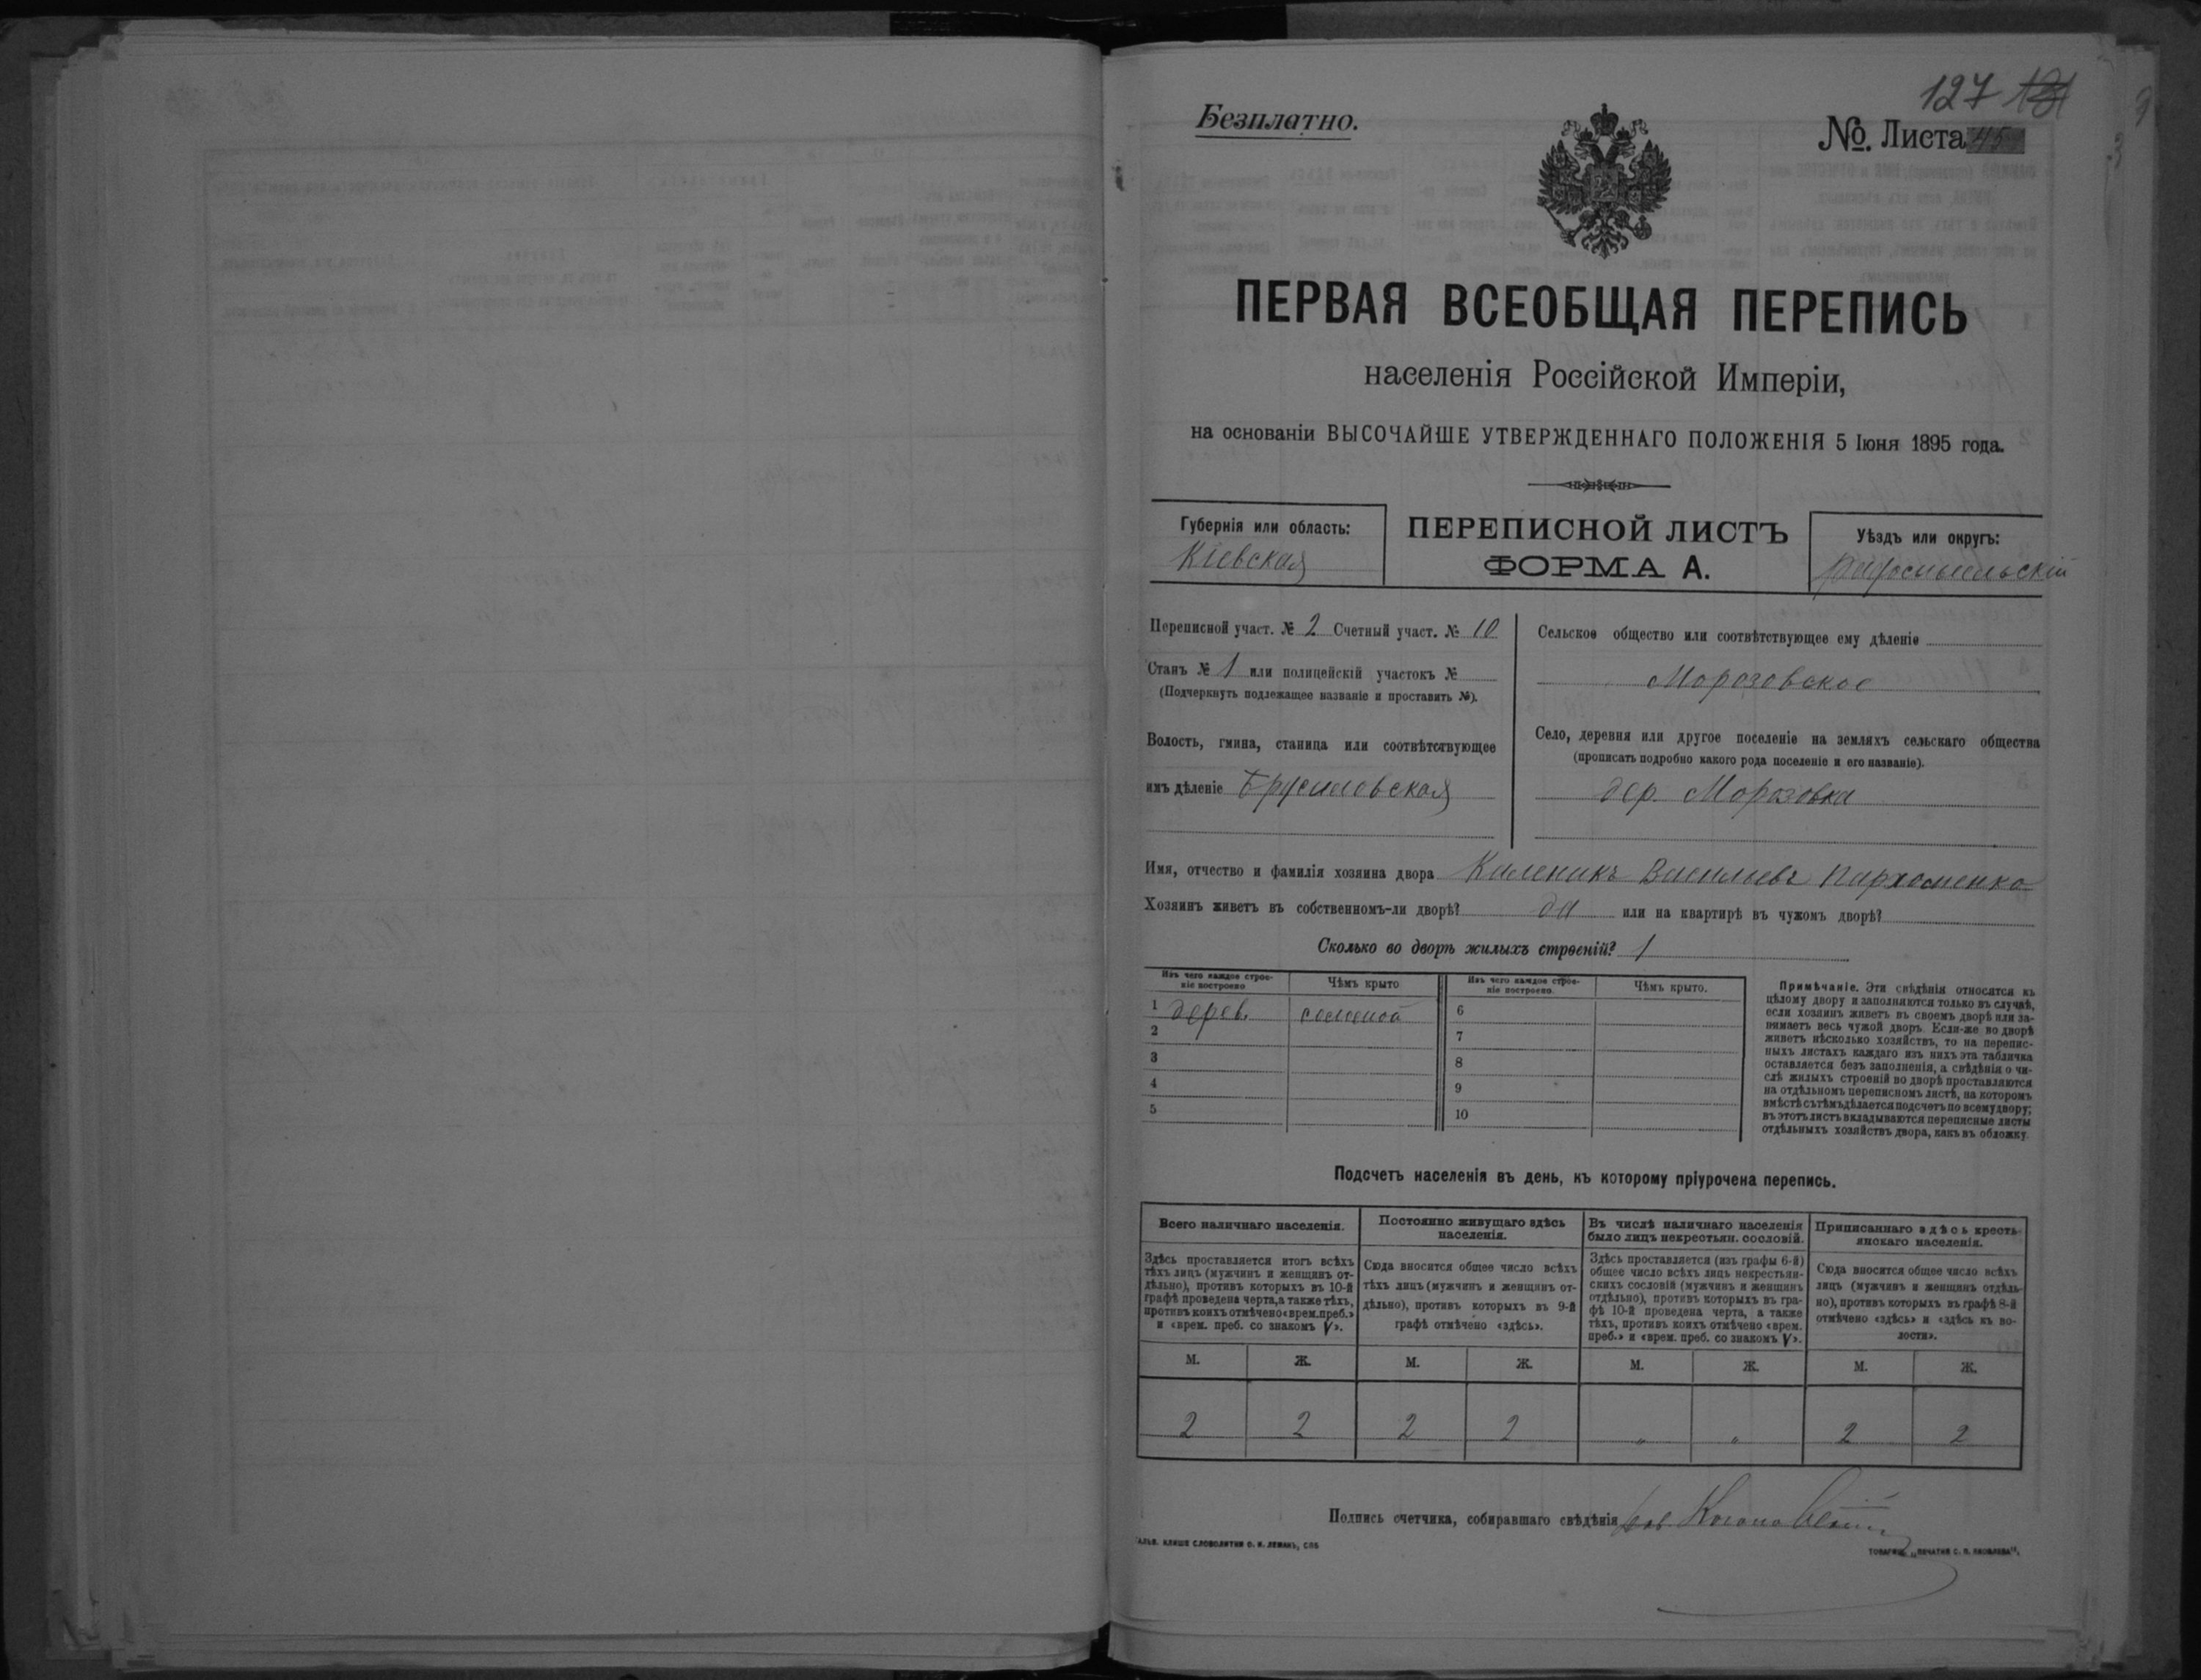 127
Безплатно.
№. Листа 45
ПЕРВАЯ ВСЕОБЩАЯ ПЕРЕПИСЬ
населенія Россійской Имперіи,
на основаніи ВЫСОЧАЙШЕ УТВЕРЖДЕННАГО ПОЛОЖЕНІЯ 5 Іюня 1895 года.
Губернія или область:
Кіевская
ПЕРЕПИСНОЙ ЛИСТЪ
ФОРМА А.
Уѣздъ или округъ:
Радомысльскій
Переписной участ. № 2 Счетный участ. № 10
Станъ № 1 или полицейскій участокъ №
(Подчеркнуть подлежащее названіе и проставить №).
Волость, гмина, станица или соотвѣтствующее
имъ дѣленіе Брусиловская
Сельское общество или соотвѣтствующее ему дѣленіе
Морозовское
Село, деревня или другое поселеніе на земляхъ сельскаго общества
(прописать подробно какого рода поселеніе и его названіе).
дер. Морозовка
Имя, отчество и фамилія хозяина двора Каленикъ Васильевъ Пархоменко
Хозяинъ живетъ въ собственномъ-ли дворѣ? да или на квартирѣ въ чужомъ дворѣ?
Сколько во дворѣ жилыхъ строеній? 1
Изъ чего каждое строе-
ніе построено
Чѣмъ крыто
Изъ чего каждое строе-
ніе построено.
Чѣмъ крыто.
1 дерев. соломой
2
3
4
5
6
7
8
9
10
Примѣчаніе. Эти свѣдѣнія относятся къ
цѣлому двору и заполняются только въ случаѣ,
если хозяинъ живетъ въ своемъ дворѣ или за-
нимаетъ весь чужой дворъ. Если-же во дворѣ
живетъ нѣсколько хозяйствъ, то на перепис-
ныхъ листахъ каждаго изъ нихъ эта табличка
оставляется безъ заполненія, а свѣдѣнія о чи-
слѣ жилыхъ строеній во дворѣ проставляются
на отдѣльномъ переписномъ листѣ, на которомъ
вмѣстѣ съ тѣмъ дѣлается подсчетъ по всему двору;
въ этотъ листъ вкладываются переписные листы
отдѣльныхъ хозяйствъ двора, какъ въ обложку.
Подсчетъ населенія въ день, къ которому пріурочена перепись.
Всего наличнаго населенія.
Здѣсь проставляется итогъ всѣхъ
тѣхъ лицъ (мужчинъ и женщинъ от-
дѣльно), противъ которыхъ въ 10-й
графѣ проведена черта, а также тѣхъ,
противъ коихъ отмѣчено «врем. преб.»
и «врем. преб. со знакомъ V».
Постоянно живущаго здѣсь
населенія.
Сюда вносится общее число всѣхъ
тѣхъ лицъ (мужчинъ и женщинъ от-
дѣльно), противъ которыхъ въ 9-й
графѣ отмѣчено «здѣсь».
Въ числѣ наличнаго населенія
было лицъ некрестьян. сословій.
Здѣсь проставляется (изъ графы 6-й)
общее число всѣхъ лицъ некрестьян-
скихъ сословій (мужчинъ и женщинъ
отдѣльно), противъ которыхъ въ гра-
фѣ 10-й проведена черта, а также
тѣхъ, противъ коихъ отмѣчено «врем.
преб.» и «врем. преб. со знакомъ V».
Приписаннаго здѣсь кресть-
янскаго населенія.
Сюда вносится общее число всѣхъ
лицъ (мужчинъ и женщинъ отдѣль-
но), противъ которыхъ въ графѣ 8-й
отмѣчено «здѣсь» и «здѣсь въ во-
лости».
М. Ж. М. Ж. М. Ж. М. Ж.
2 2 2 2 " " 2 2
Подпись счетчика, собиравшаго свѣдѣнія
ГАЛЬВ. КЛИШЕ СЛОВОЛИТНИ О. И. ЛЕМАНЪ, СПБ
ТОВАРИЩ. „ПЕЧАТНЯ С. П. ЯКОВЛЕВА“.